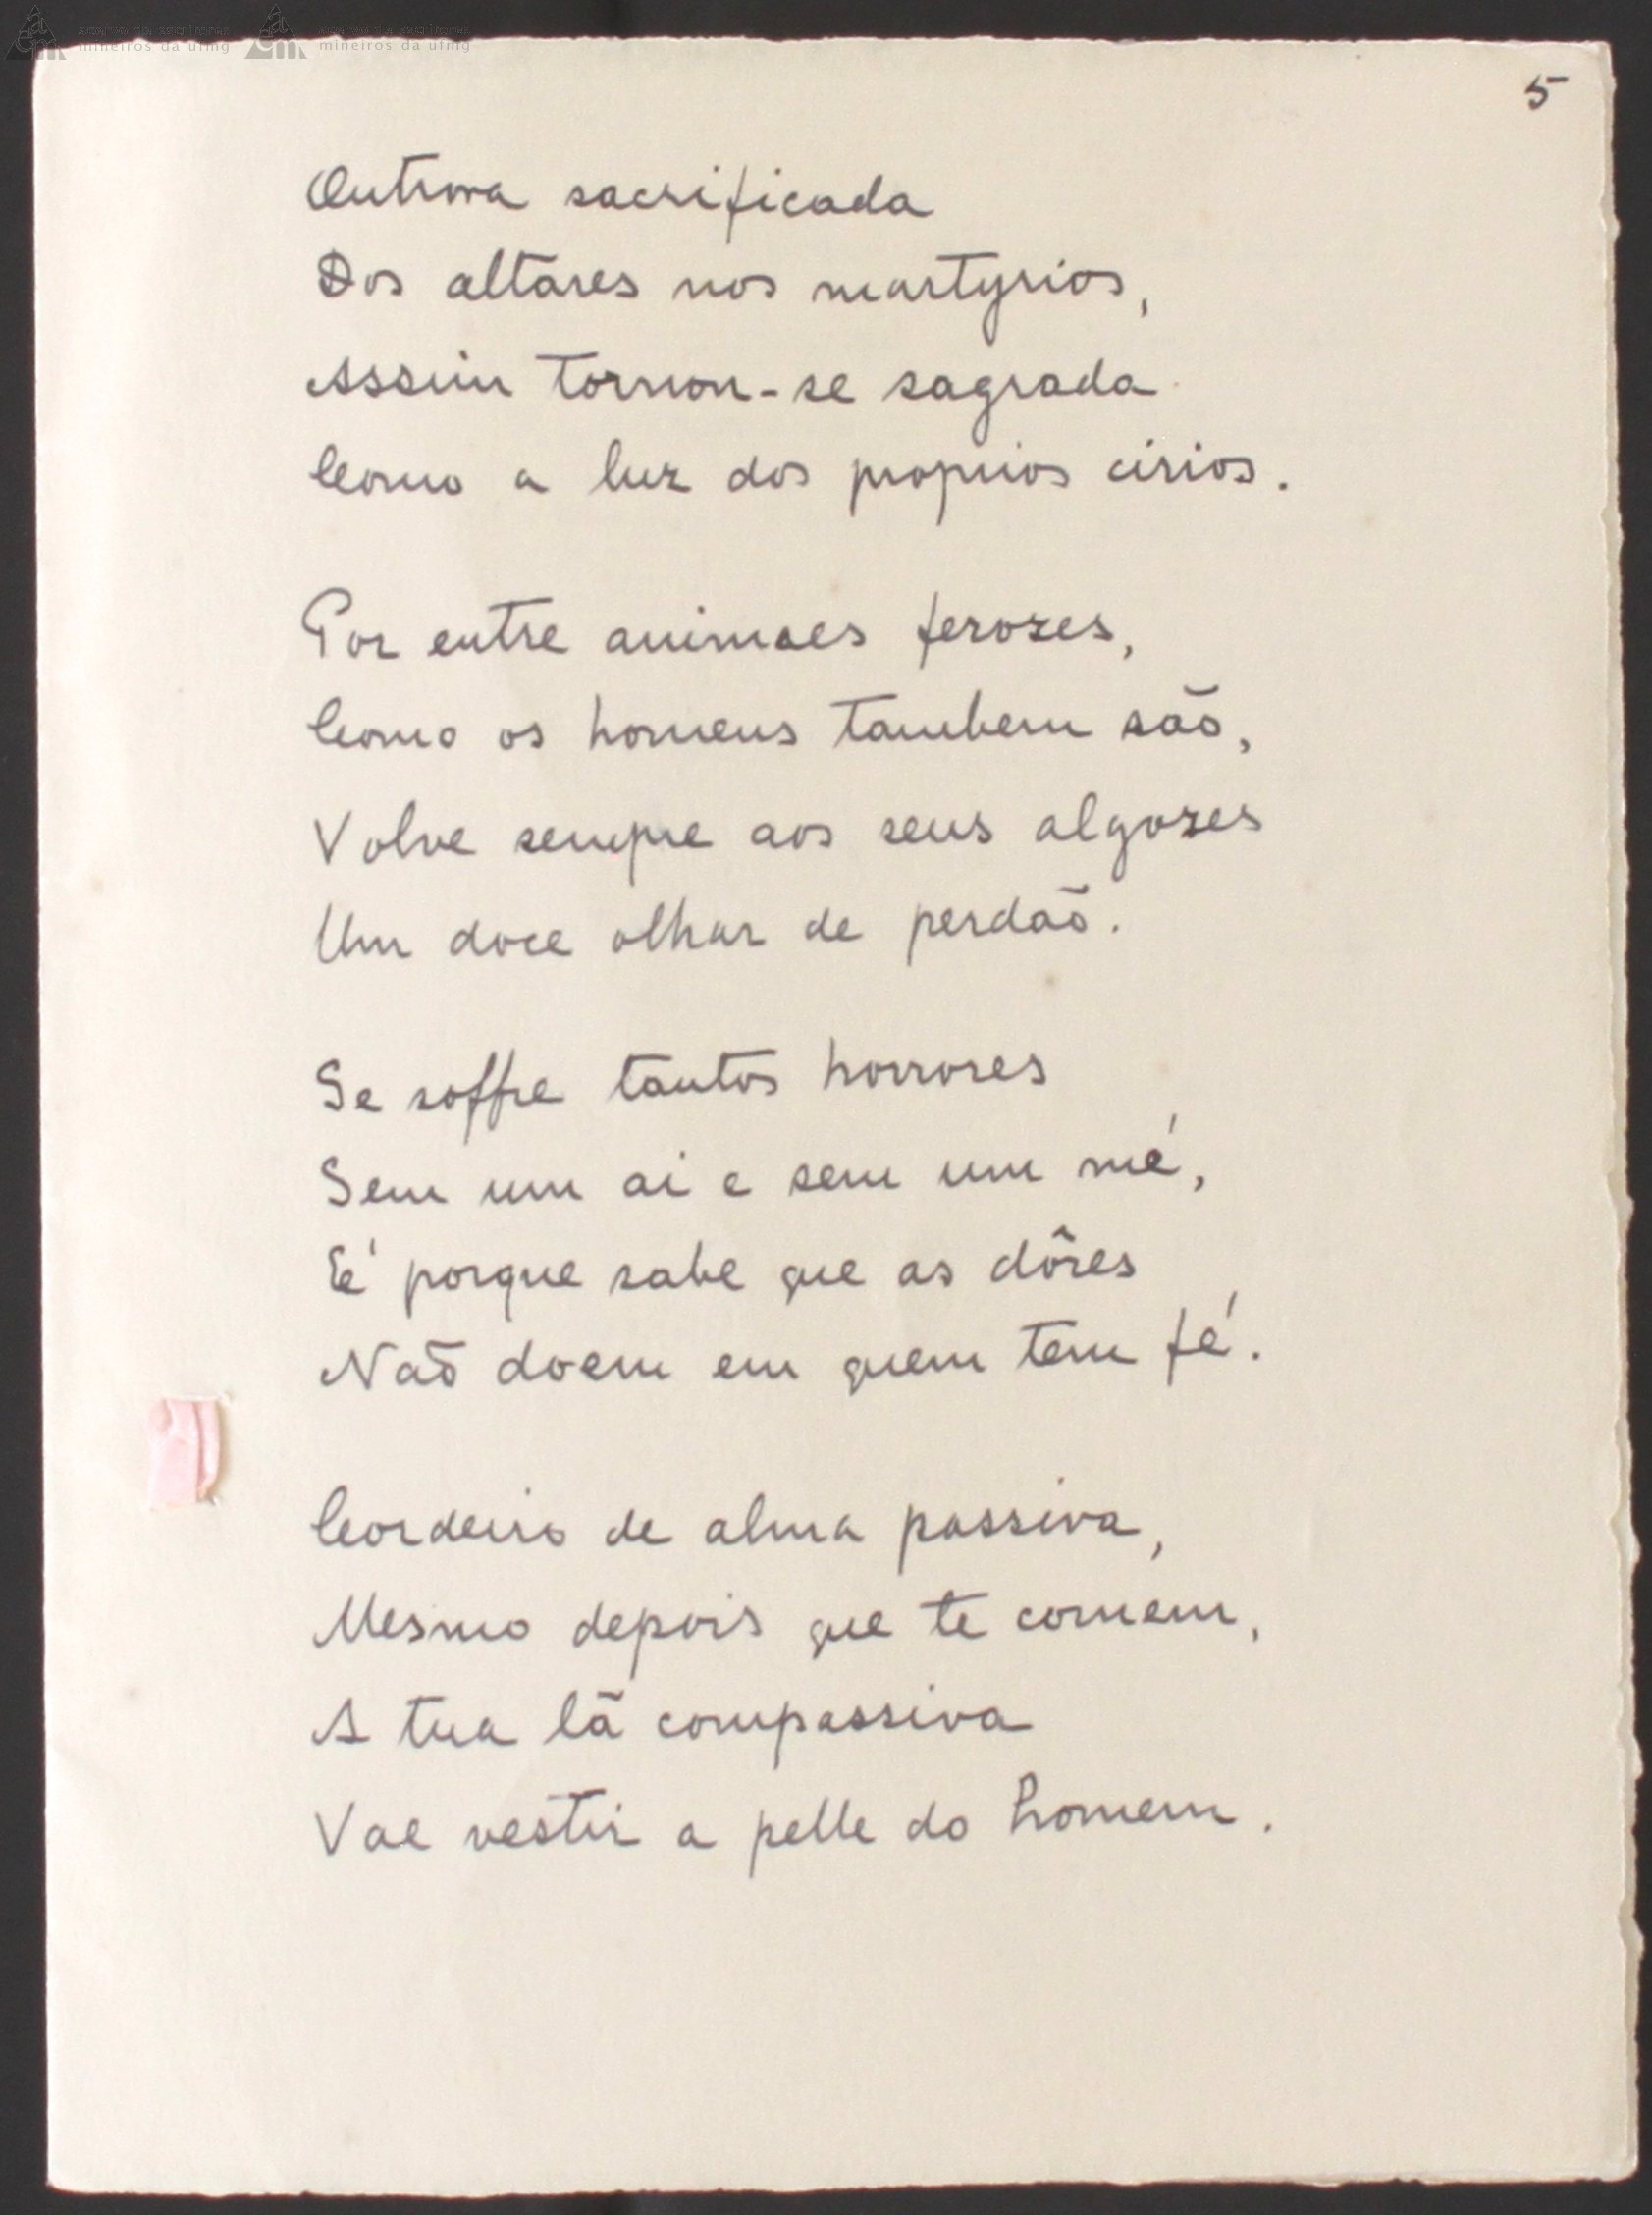 acervo de escritores
mineiros da ufmg
acervo de escritores
mineiros da ufmg
5
Outrora sacrificada
Dos altares nos martyrios,
Assim tornou-se sagrada
Como a luz dos proprios cirios.
Por entre animaes ferozes,
Como os homens tambem são,
Volve sempre aos seus algozes
Um doce olhar de perdão.
Se soffre tantos horrores
Sem um ai e sem um mé,
É porque sabe que as dôres
Não doem em quem tem fé.
Cordeiro de alma passiva,
Mesmo depois que te comem,
A tua lã compassiva
Vae vestir a pelle do homem.